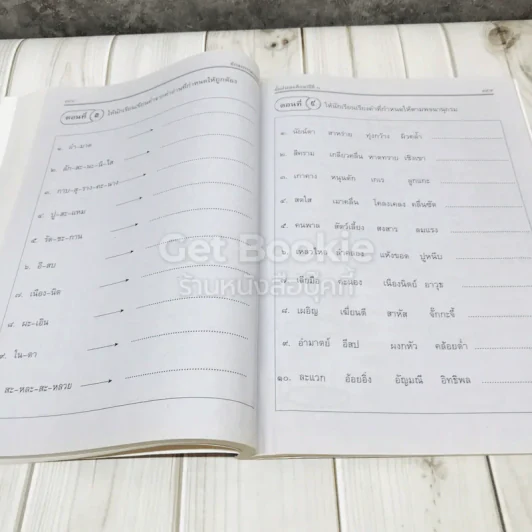 ตอนที่ ๕ ให้นักเรียนเขียนคำจากคำอ่านที่กำหนดให้ถูกต้อง
๑. อำ-มาด
๔. ปู-สะ-แหม
๕. รัด-ชะ-กาน
๖. อี-สบ
๗. เนือง-นิด
๘. ผะ-เอิน
๙. ใน-ตา
สะ-หละ-สะ-หลวย
ตอนที่ ๙ ให้นักเรียนเรียงคำที่กำหนดให้ตามพจนานุกรม
๑. นัยน์ตา สาหร่าย ทุ่งกว้าง
๒. สีคราม เกลียวคลื่น หาดทราย เชิงเขา
๓. เกาทาง หมุนตัก เกเร ผูกแกะ
๔. สดใส เฝ้าคลื่น โคลงเคลง คลื่นซัด
๕. คนพาล สัตว์เลี้ยง สงสาร ลมแรง
๖. เหลวไหล ลำคลอง แห้งขอด ปู่หนีบ
๗. เลียมือ คะนอง เนืองนิตย์ อาวุธ
๘. เผอิญ เฆี่ยนตี สาหัส จั๊กกะจี้
๙. อำมาตย์ อีสป ผงกหัว คล้อยต่ำ
๑๐. ละแวก อ้อยอิ่ง อัญมณี อิทธิพล
Get Bookie
ร้านหนังสือบุ๊คกี้